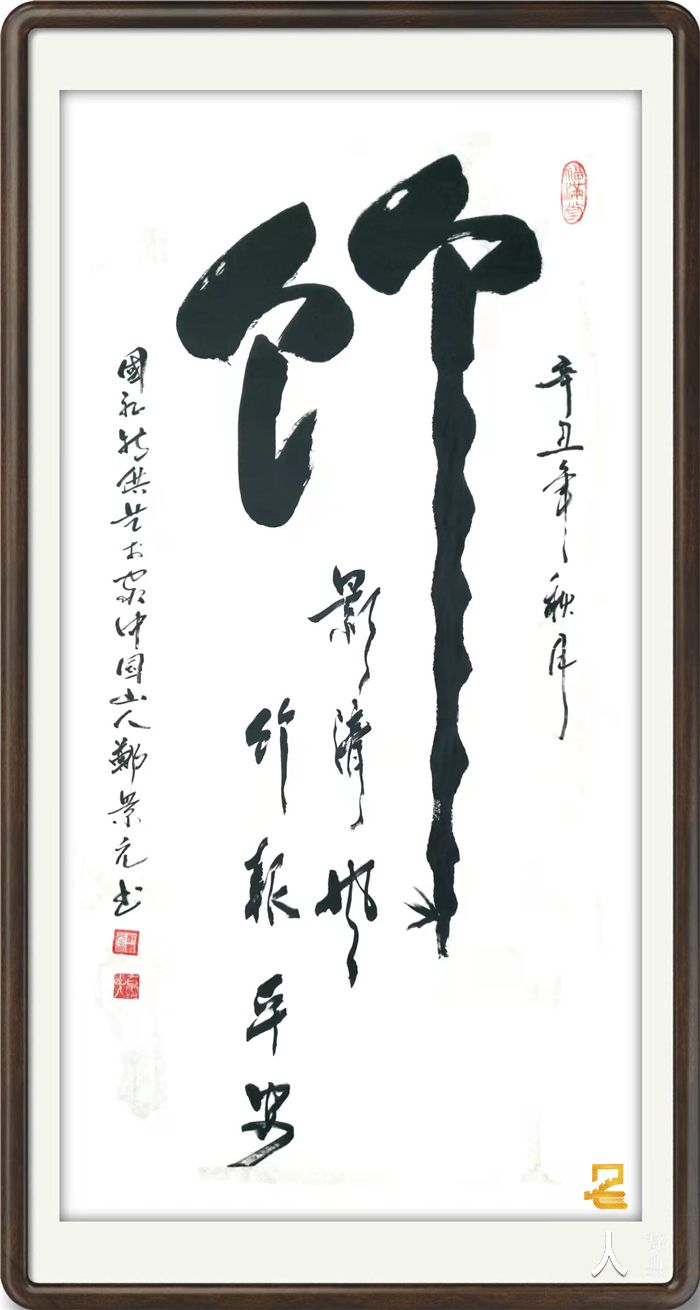 福滿堂
辛丑年秋月
竹
影清風
竹報平安
國礼特供艺术家中国山人鄭景元书
人